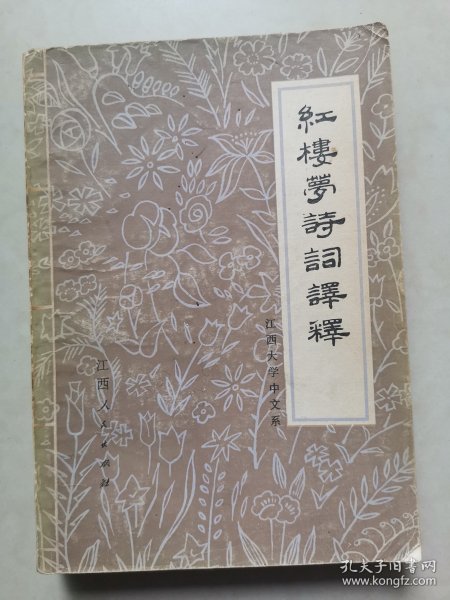 紅樓夢詩詞譯釋
江西大学中文系
江西人民出版社
孔夫子旧书网
www.kongfz.com